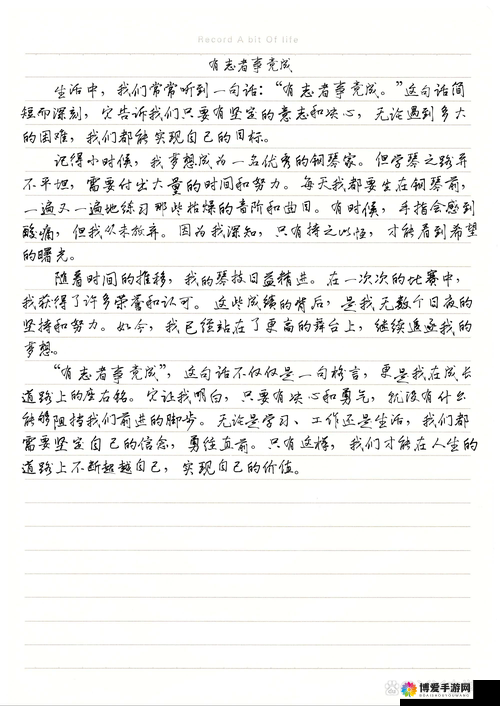 Record A bit Of life
有志者事竟成
生活中，我们常常听到一句话：“有志者事竟成。”这句话简
短而深刻，它告诉我们只要有坚定的意志和决心，无论遇到多大
的困难，我们都能实现自己的目标。
记得小时候，我梦想成为一名优秀的钢琴家。但学琴之路并
不平坦，需要付出大量的时间和努力。每天我都要坐在钢琴前，
一遍又一遍地练习那些枯燥的音阶和曲目。有时候，手指会感到
酸痛，但我从未放弃。因为我深知，只有持之以恒，才能看到希望
的曙光。
随着时间的推移，我的琴技日益精进。在一次次的比赛中，
我获得了许多荣誉和认可。这些成绩的背后，是我无数个日夜的
坚持和努力。如今，我已经站在了更高的舞台上，继续追逐我的
梦想。
“有志者事竟成”，这句话不仅仅是一句格言，更是我在成长
道路上的座右铭。它让我明白，只要有决心和勇气，就没有什么
能够阻挡我们前进的脚步。无论是学习、工作还是生活，我们都
需要坚定自己的信念，勇往直前。只有这样，我们才能在人生的
道路上不断超越自己，实现自己的价值。
博爱手游网